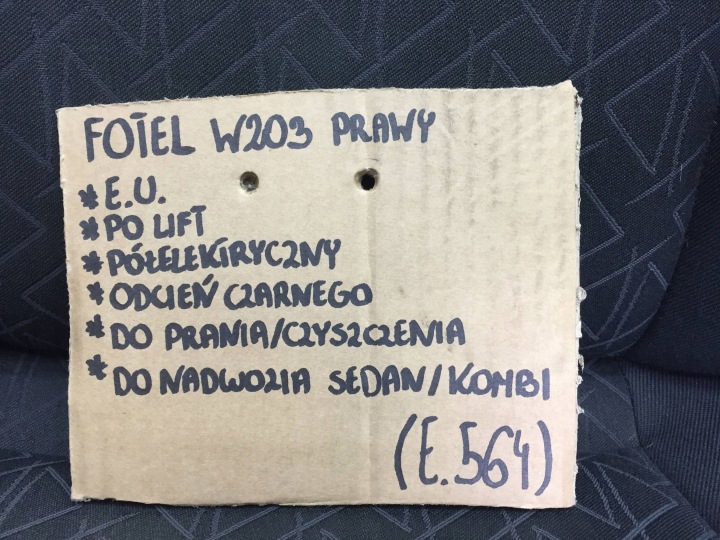 FOTEL W203 PRAWY
* E.U.
* PO LIFT
* PÓŁELEKTRYCZNY
* ODCIEŃ CZARNEGO
* DO PRANIA/CZYSZCZENIA
* DO NADWOZIA SEDAN/KOMBI
(E.564)